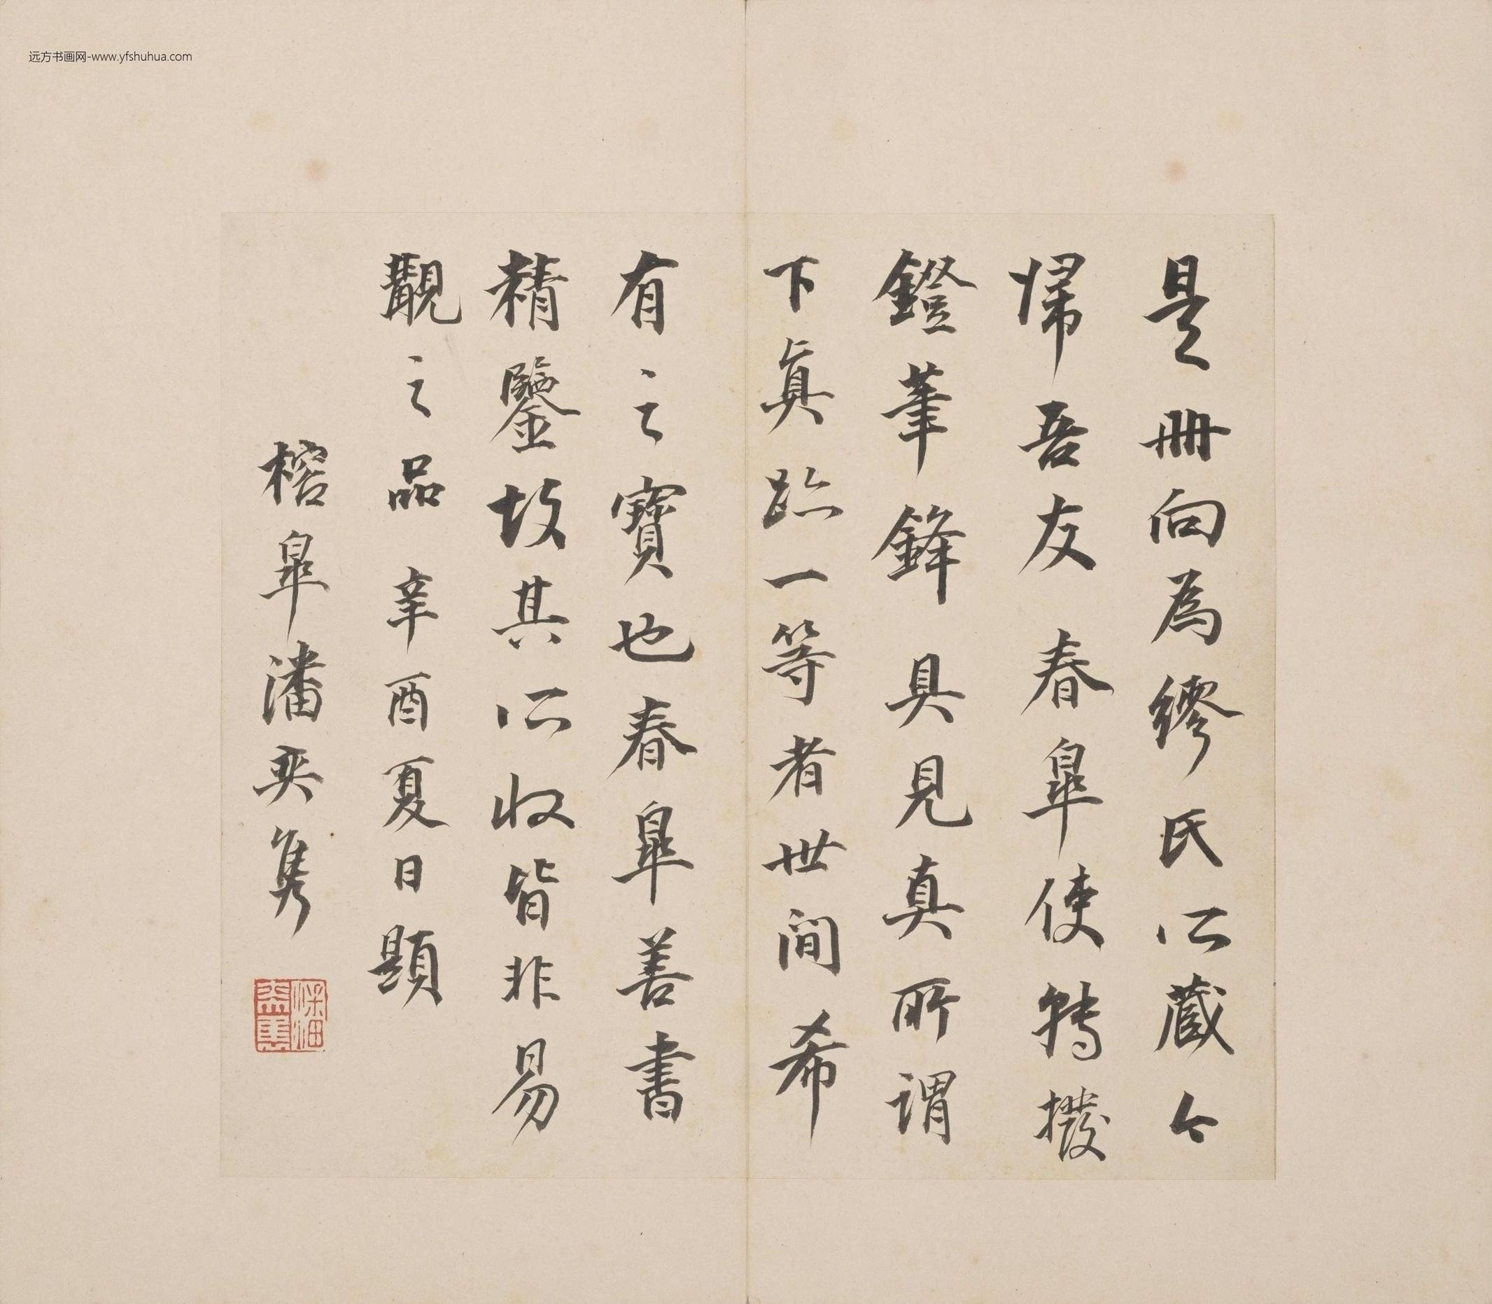 远方书画网-www.yfshuhua.com
是册向為繆氏所蔵今
帰吾友春皐使轉撥
鐙筆鋒具見真所謂
下真跡一等者世間希
有之寶也春皐善書
精鑒故其所收皆非易
覯之品辛酉夏日題
榕皐潘奕雋